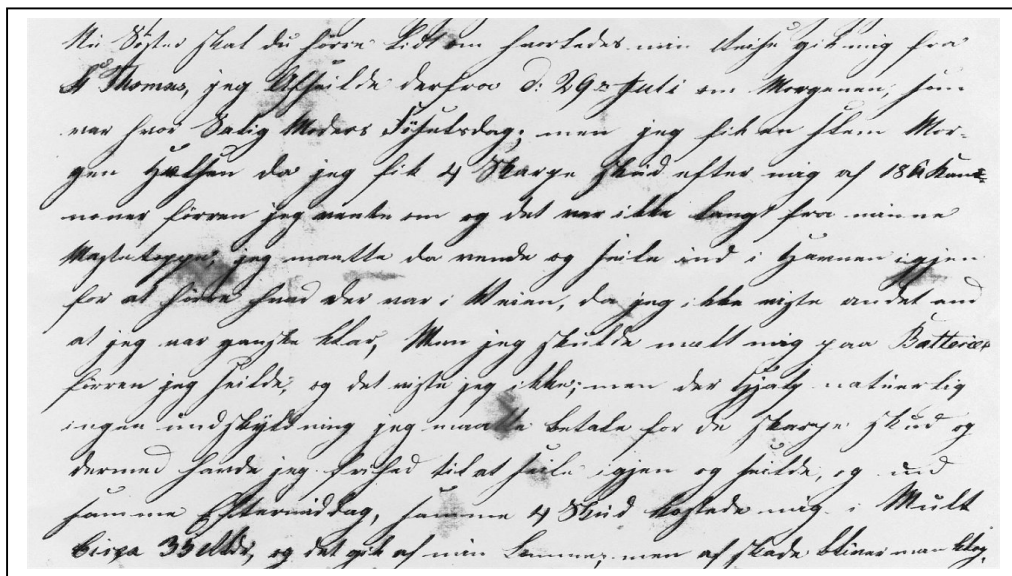 Nu Søster skal du høre lidt om hvorledes min Reise gik mig fra
St Thomas, jeg Afseilde derfra d: 29de Juli om Morgenen, som
var vor Salig Moders Föselsdag; men jeg fik en slem Mor-
gen Hilsen da jeg fik 4 Skarpe Skud efter mig af 18 ℔ Kano-
noner förren jeg vente om og det var ikke langt fra minne
Mastetoppe; jeg maatte da vende og seile ind i Havnen igjen
for at höre hvad der var i Veien, da jeg ikke viste andet end
at jeg var ganske klar, Men jeg skulde meldt mig paa Batteriet
förren jeg seilde, og det viste jeg ikke; men der hjalp natuerlig
ingen undskyldning jeg maatte betale for de skarpe skud og
dermed havde jeg frihed til at seile igjen og seilde, og ud
samme Eftermiddag, samme 4 Skud kostede mig i Mult
Circa 33 Rdr, og det gik af min Lomme, men af skade bliver man klog,